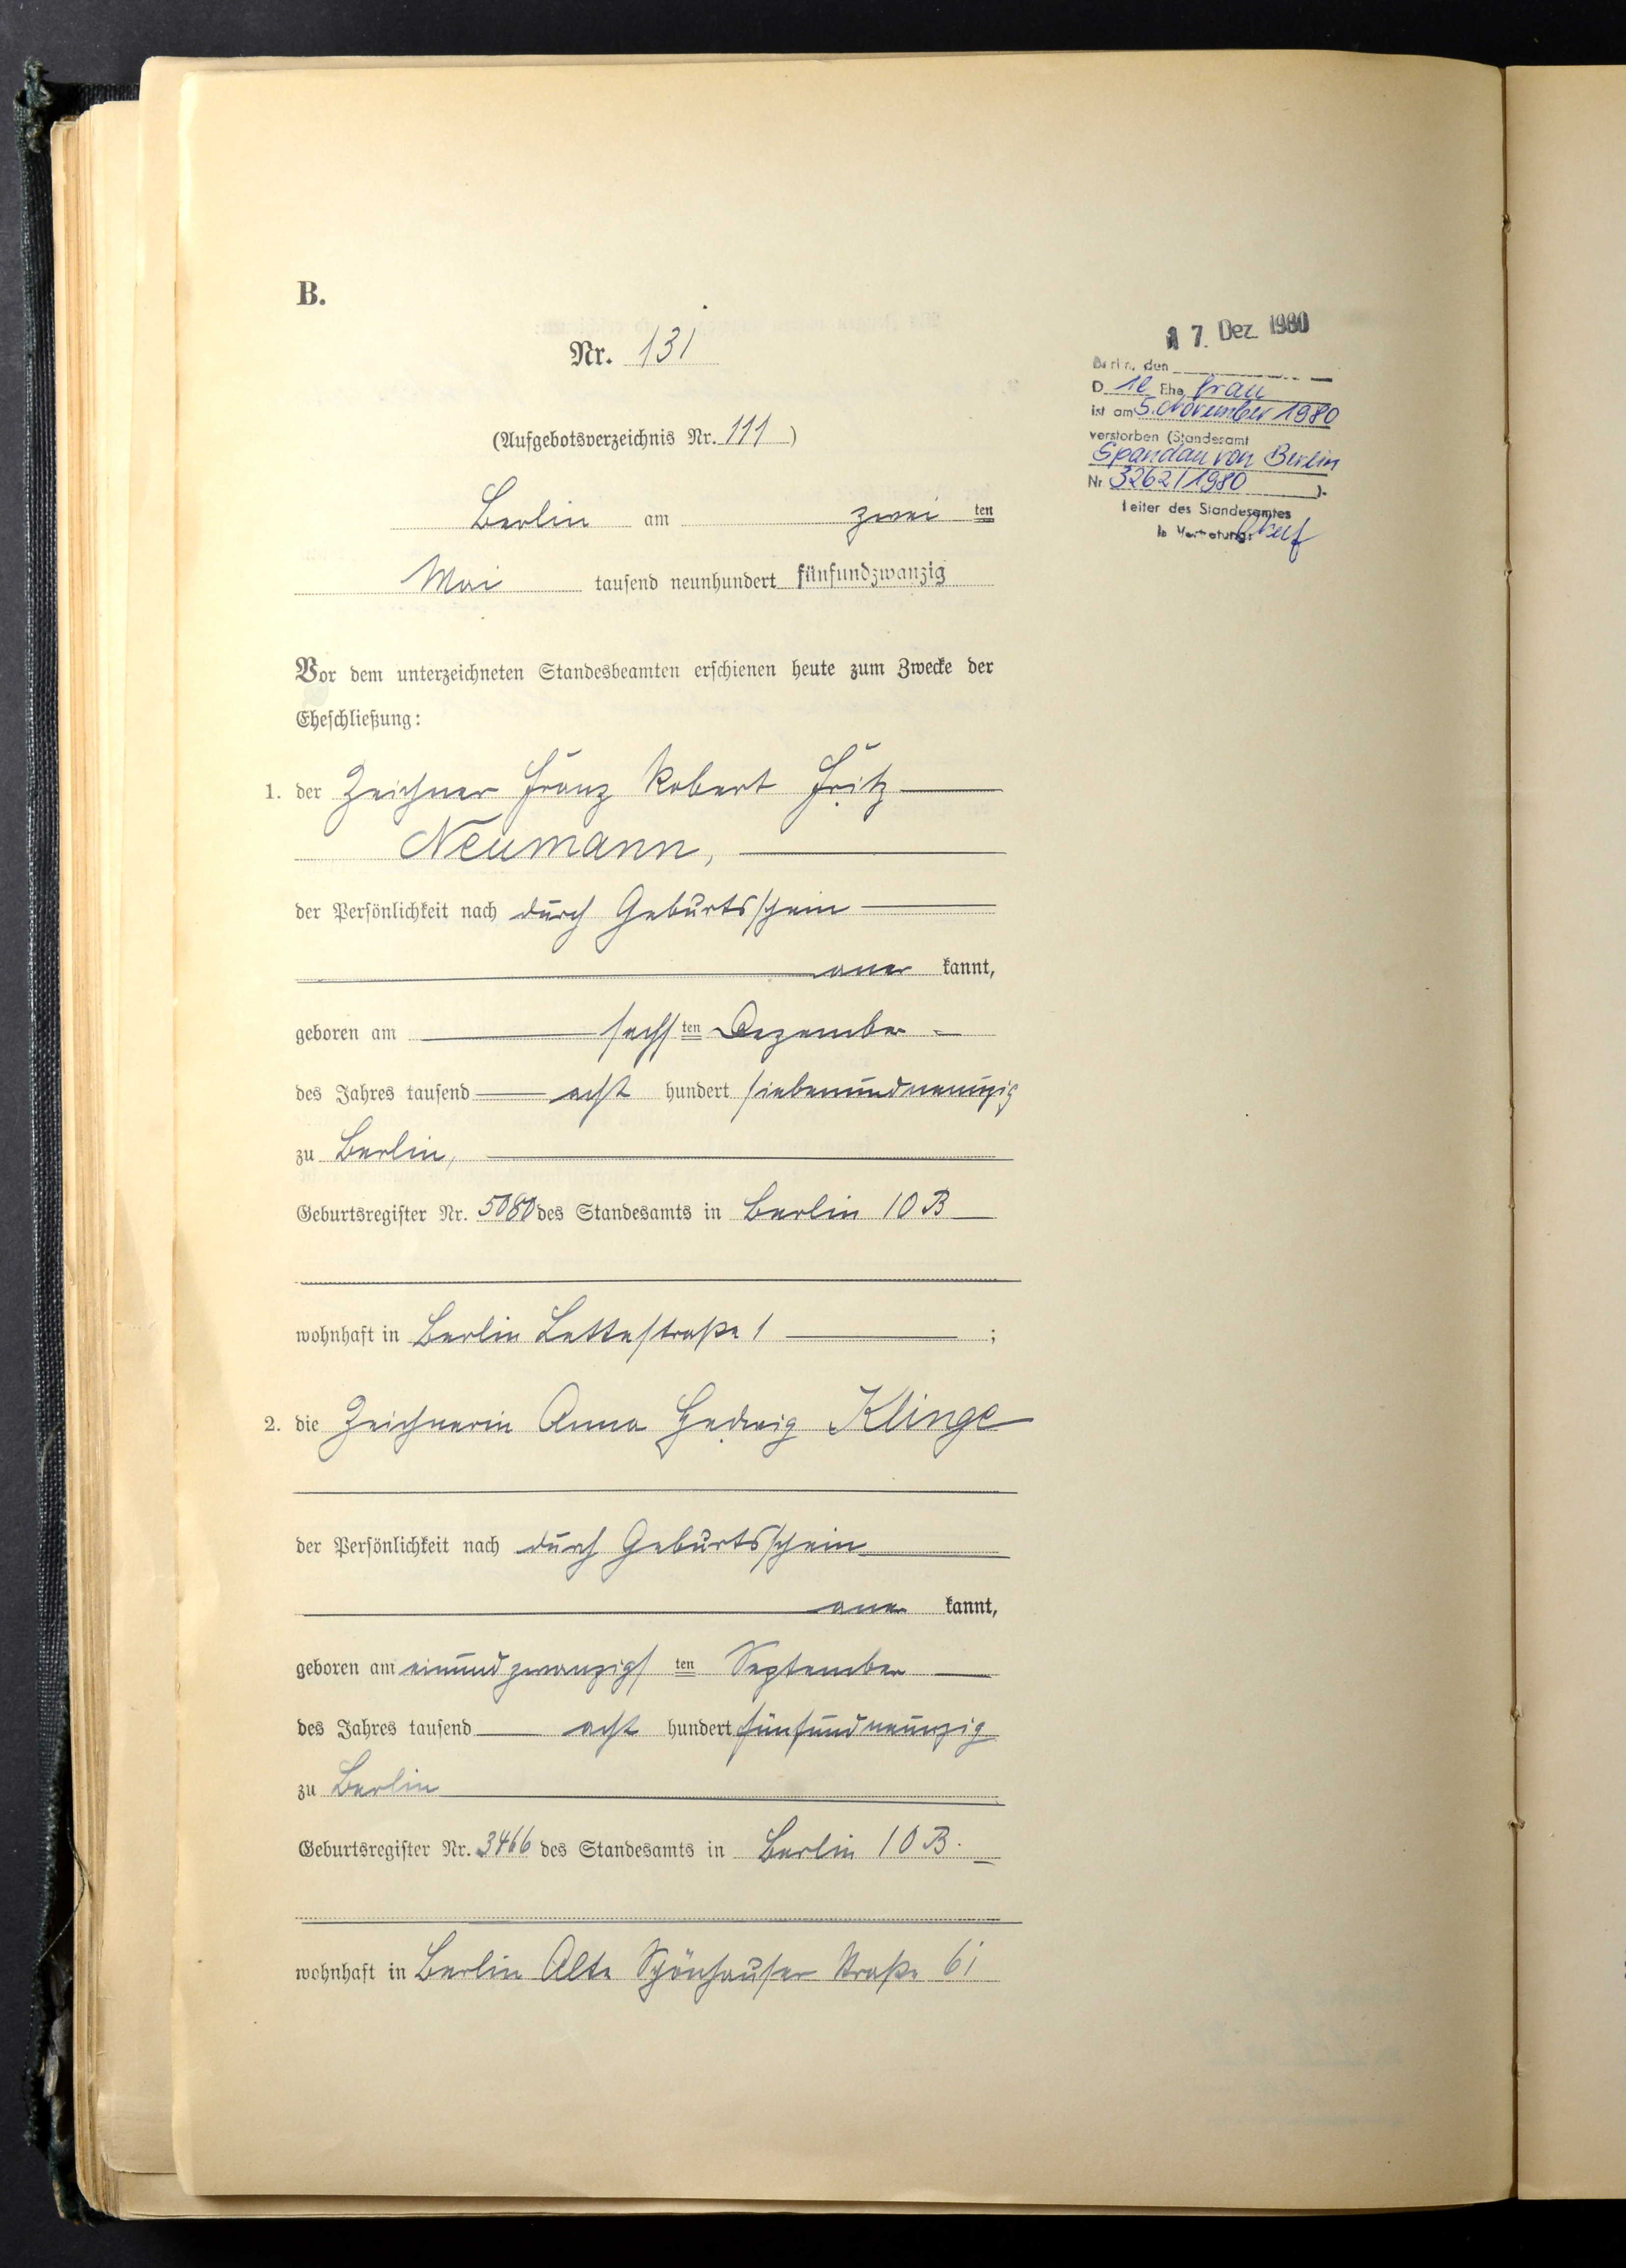 B.
Nr. 131
(Aufgebotsverzeichnis Nr. 111)
Berlin am zwei ten
Mai tausend neunhundert fünfundzwanzig
Vor dem unterzeichneten Standesbeamten erschienen heute zum Zwecke der
Eheschließung:
1. der Zeichner Franz Robert Fritz
Neumann,
der Persönlichkeit nach durch Geburtsschein
aner kannt,
geboren am sechs ten Dezember
des Jahres tausend acht hundert siebenundneunzig
zu Berlin,
Geburtsregister Nr. 5080 des Standesamts in Berlin 10 B
wohnhaft in Berlin Lettestraße 1 ;
2. die Zeichnerin Anna Hedwig Klinge
der Persönlichkeit nach durch Geburtsschein
aner kannt,
geboren am einundzwanzigs ten September
des Jahres tausend acht hundert fünfundneunzig
zu Berlin
Geburtsregister Nr. 3466 des Standesamts in Berlin 10 B.
wohnhaft in Berlin Alte Schönhauser Straße 61
17. Dez. 1980
Berlin, den
D ie Ehe frau
ist am 5. November 1980
verstorben (Standesamt
Spandau von Berlin
Nr 3262/1980 ).
Leiter des Standesamtes
In Vertretung: